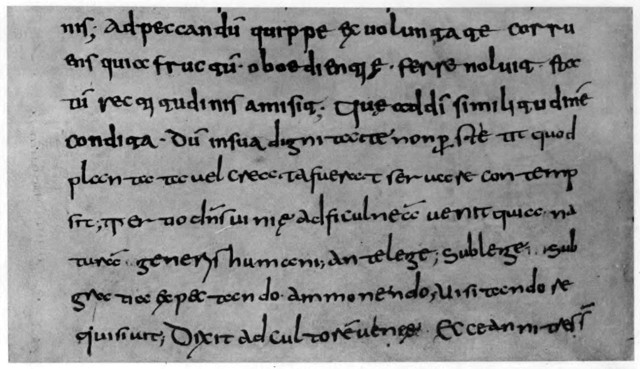 nis; Ad peccandū quippe ex uoluntate corru
ens quia fructū · oboedientię · ferre noluit · sta
tū rectitudinis amisit; Que ad dī similitudinē
condita · Dū in sua dignitate non p̱stetit quod
plantata uel creata fuerat seruare contemp
sit; Tertio dn̄s uinię ad ficulneā uenit quia na
turā generis humani; ante lege; sub lege; sub
gratia expectando · ammonendo, uisitando re
quisiuit; Dixit ad cultorē uinię Ecce anni tres s̄